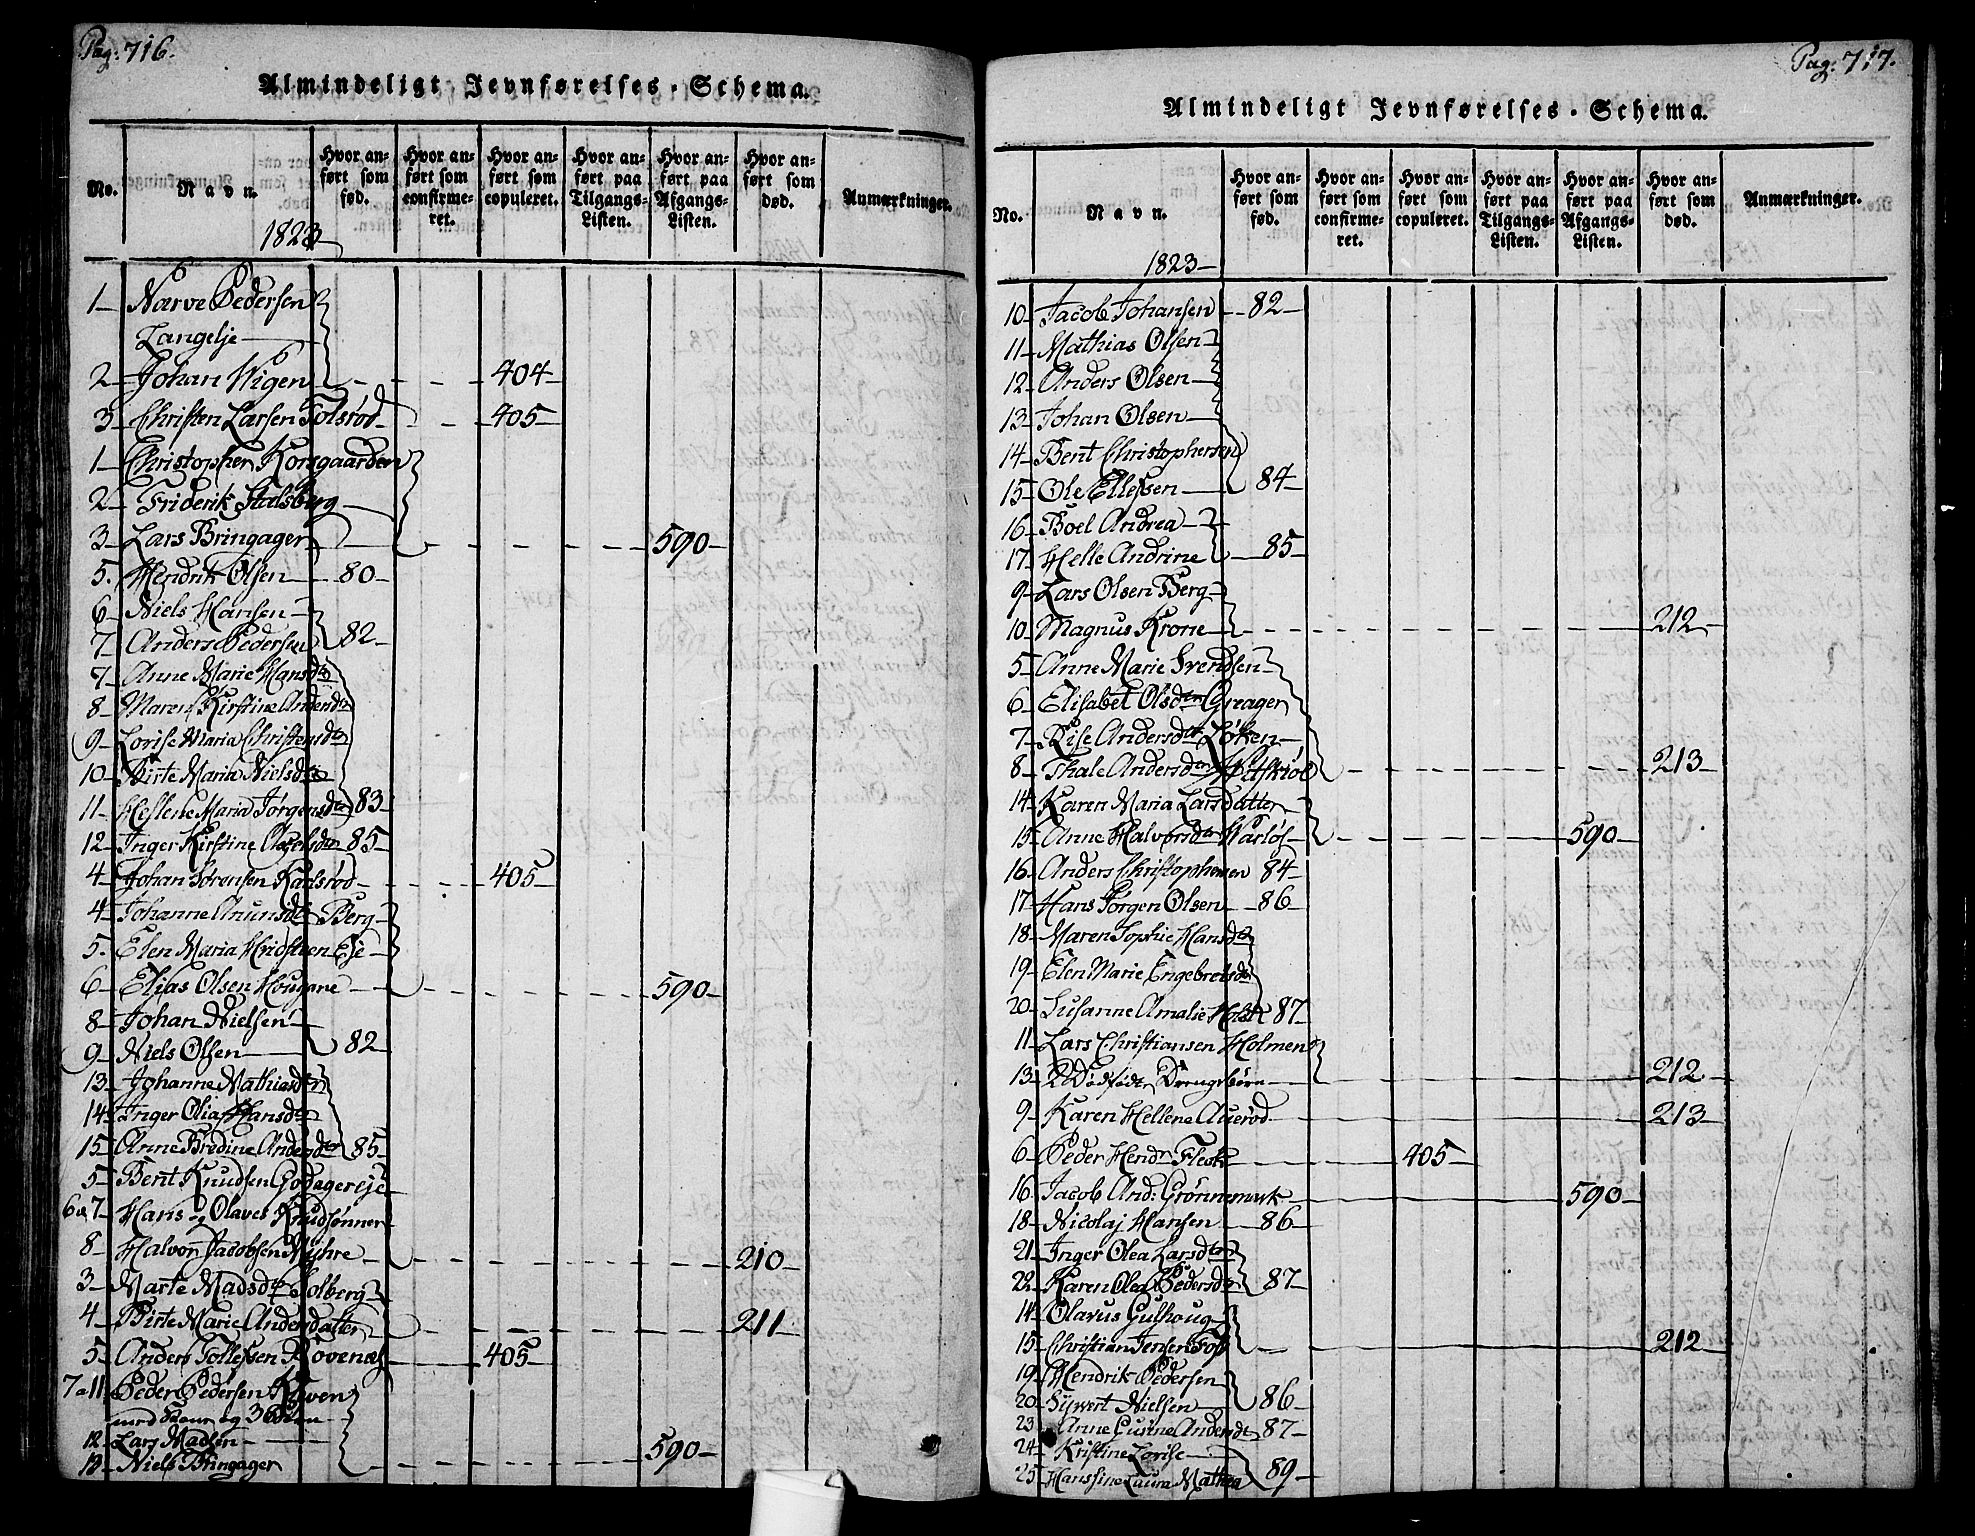 Pag: 716.
Almindeligt Jevnførelses-Schema.
No. Navn. Hvor anført som fød. Hvor anført som confirmeret. Hvor anført som copuleret. Hvor anført paa Tilgangs-Listen. Hvor anført paa Afgangs-Listen. Hvor anført som død. Anmærkninger.
1823
1 Narve Pedersen
Langelje
2 Johan Wigen 404
3 Christen Larsen Tolsrød 405
1 Christopher Korsgaarden
2 Friderik Stalsberg
3 Lars Bringager 590
5. Hendrik Olsen 80
6 Niels Hansen
7 Anders Pedersen 82
7 Anne Marie Hansdtr
8 Maren Kirstine Andersdtr
9 Lovise Maria Christensdtr
10 Birte Maria Nielsdtr
11 Hellene Maria Jørgensdtr 83
12 Inger Kirstine Axelsdtr 85
4 Johan Sørensen Karlsrød 405
4 Johanne Amundsdtr Berg
5. Elen Maria Hvidsteen Eje
6 Elias Olsen Hougane 590
8 Johan Nielsen
9 Niels Olsen 82
13 Johanne Mathiasdtr
14 Inger Olia Hansdtr
15 Anne Bredine Andersdtr 85
5 Bent Knudsen Godagereje
6 & 7 Hans og Olaves Knudsønner
8 Halvor Jacobsen Myhre 210
3 Marte Madsdtr Solberg
4 Birte Marie Andersdatter 211
5 Anders Tollefsen Rovenæs 405
7 a 11 Peder Pedersen Kløven
med Kone og 3 Børn
12 Lars Madsen
13 Niels Bringager 590
Pag: 717.
Almindeligt Jevnførelses-Schema.
No. Navn. Hvor anført som fød. Hvor anført som confirmeret. Hvor anført som copuleret. Hvor anført paa Tilgangs-Listen. Hvor anført paa Afgangs-Listen. Hvor anført som død. Anmærkninger.
1823
10 Jacob Johansen 82
11 Mathias Olsen
12 Anders Olsen
13 Johan Olsen
14 Bent Christophersen
15 Ole Ellefsen 84
16 Boel Andrea
17 Helle Andrine 85
9 Lars Olsen Berg
10 Magnus Krone 212
5 Anne Marie Svendsen
6 Elisabet Olsdtr Greager
7 Lise Andersdtr Løken
8 Thale Andersdtr 213
14 Karen Maria Larsdatter
15 Anne Halvorsdtr Warløs 590
16 Anders Christophersen 84
17 Hans Jørgen Olsen 86
18 Maren Sophie Hansdtr
19 Elen Marie Engebretsdtr
20 Susanne Amalie Holst 87
11 Lars Christiansen Holmen
13 2 Dødfødte Drengebørn 212
9 Karen Hellene Auerød 213
6 Peder Hendr. Fleske 405
16 Jacob And: Grønnemark 590
18 Nicolaj Hansen 86
21 Inger Olea Larsdtr
22 Karen Olea Pedersdtr 87
14 Olavus Gulhoug
15 Christian Jensen Fos 212
19 Hendrik Pedersen
20 Syvert Nielsen 86
23 Anne Gurine Andersdtr 87
24 Kristine Lovise
25 Hansine Laura Mathea 89